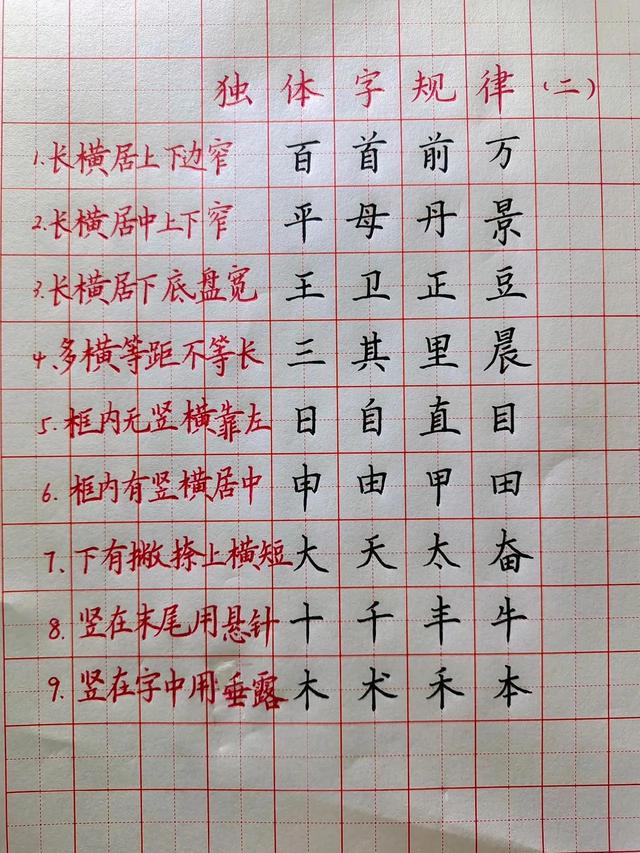 独体字规律（二）
1.长横居上下边窄 百首前万
2.长横居中上下窄 平母丹景
3.长横居下底盘宽 王卫正豆
4.多横等距不等长 三其里晨
5.框内无竖横靠左 日自直目
6.框内有竖横居中 申由甲田
7.下有撇捺上横短 大天太奋
8.竖在末尾用悬针 十千丰牛
9.竖在字中用垂露 木术禾本